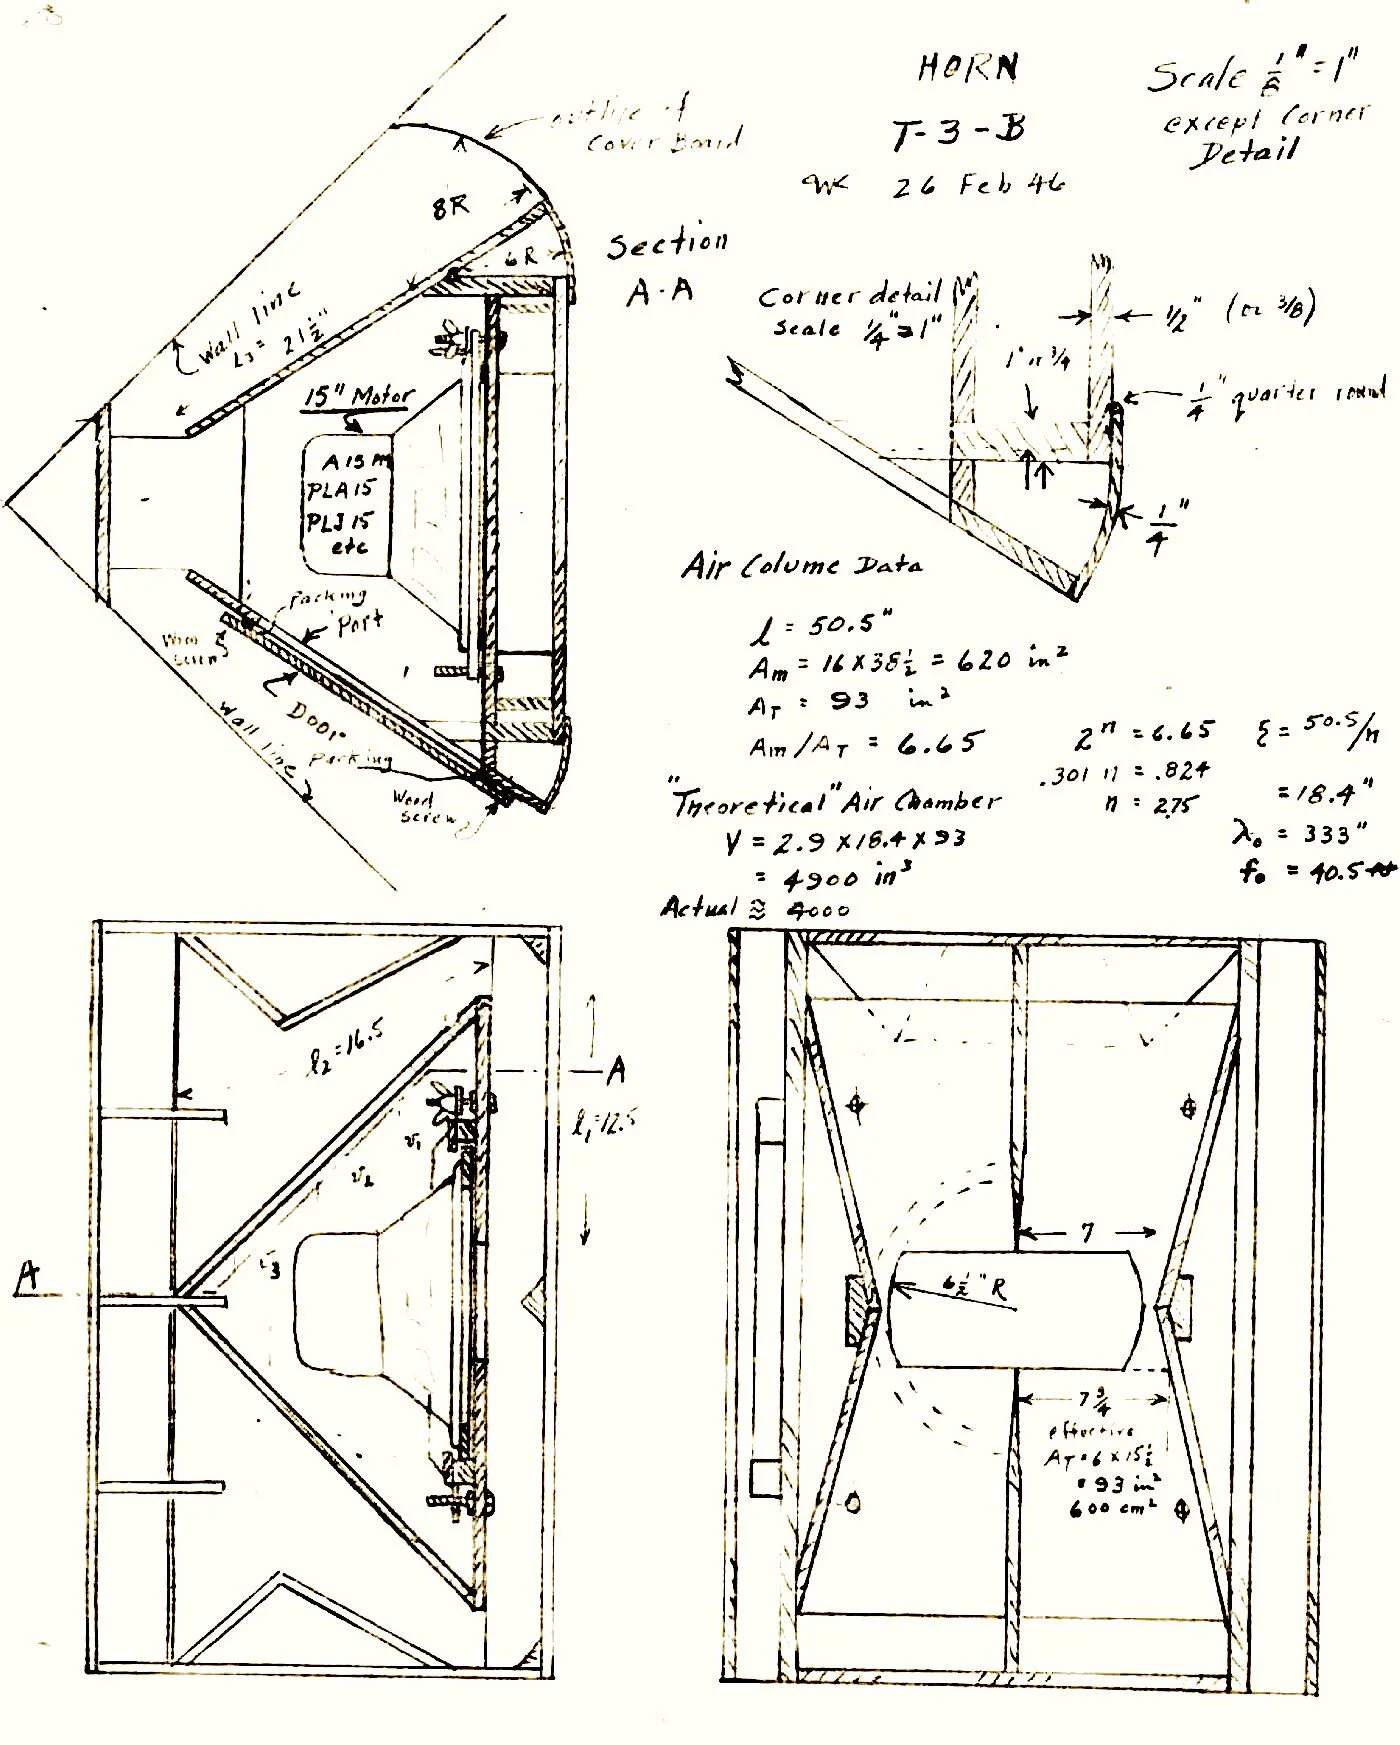 HORN
T-3-B
WK 26 Feb 46
Scale 1/8" = 1"
except Corner
Detail
outline of
Cover Board
8R
6R
Section
A-A
Wall line
L₃ = 21½"
15" Motor
A 15 M
PLA 15
PLJ 15
etc
Packing
Port
Wood
Screw
Door
Wall line
Packing
Wood
Screw
Corner detail
Scale ¼" = 1"
½" (or 3/8)
1" or ¾
¼" quarter round
¼"
Air Colume Data
l = 50.5"
Am = 16 X 38½ = 620 in²
AT = 93 in²
Am/AT = 6.65
2ⁿ = 6.65
.301 n = .824
n = 2.75
ξ = 50.5/n
= 18.4"
λ₀ = 333"
f₀ = 40.5
"Theoretical" Air Chamber
V = 2.9 X 18.4 X 93
= 4900 in³
Actual ≅ 4000
l₂ = 16.5
A
l₁ = 12.5
v₁
v₂
v₃
A
7
6½" R
7¾
effective
AT = 6 x 15½
= 93 in²
600 cm²